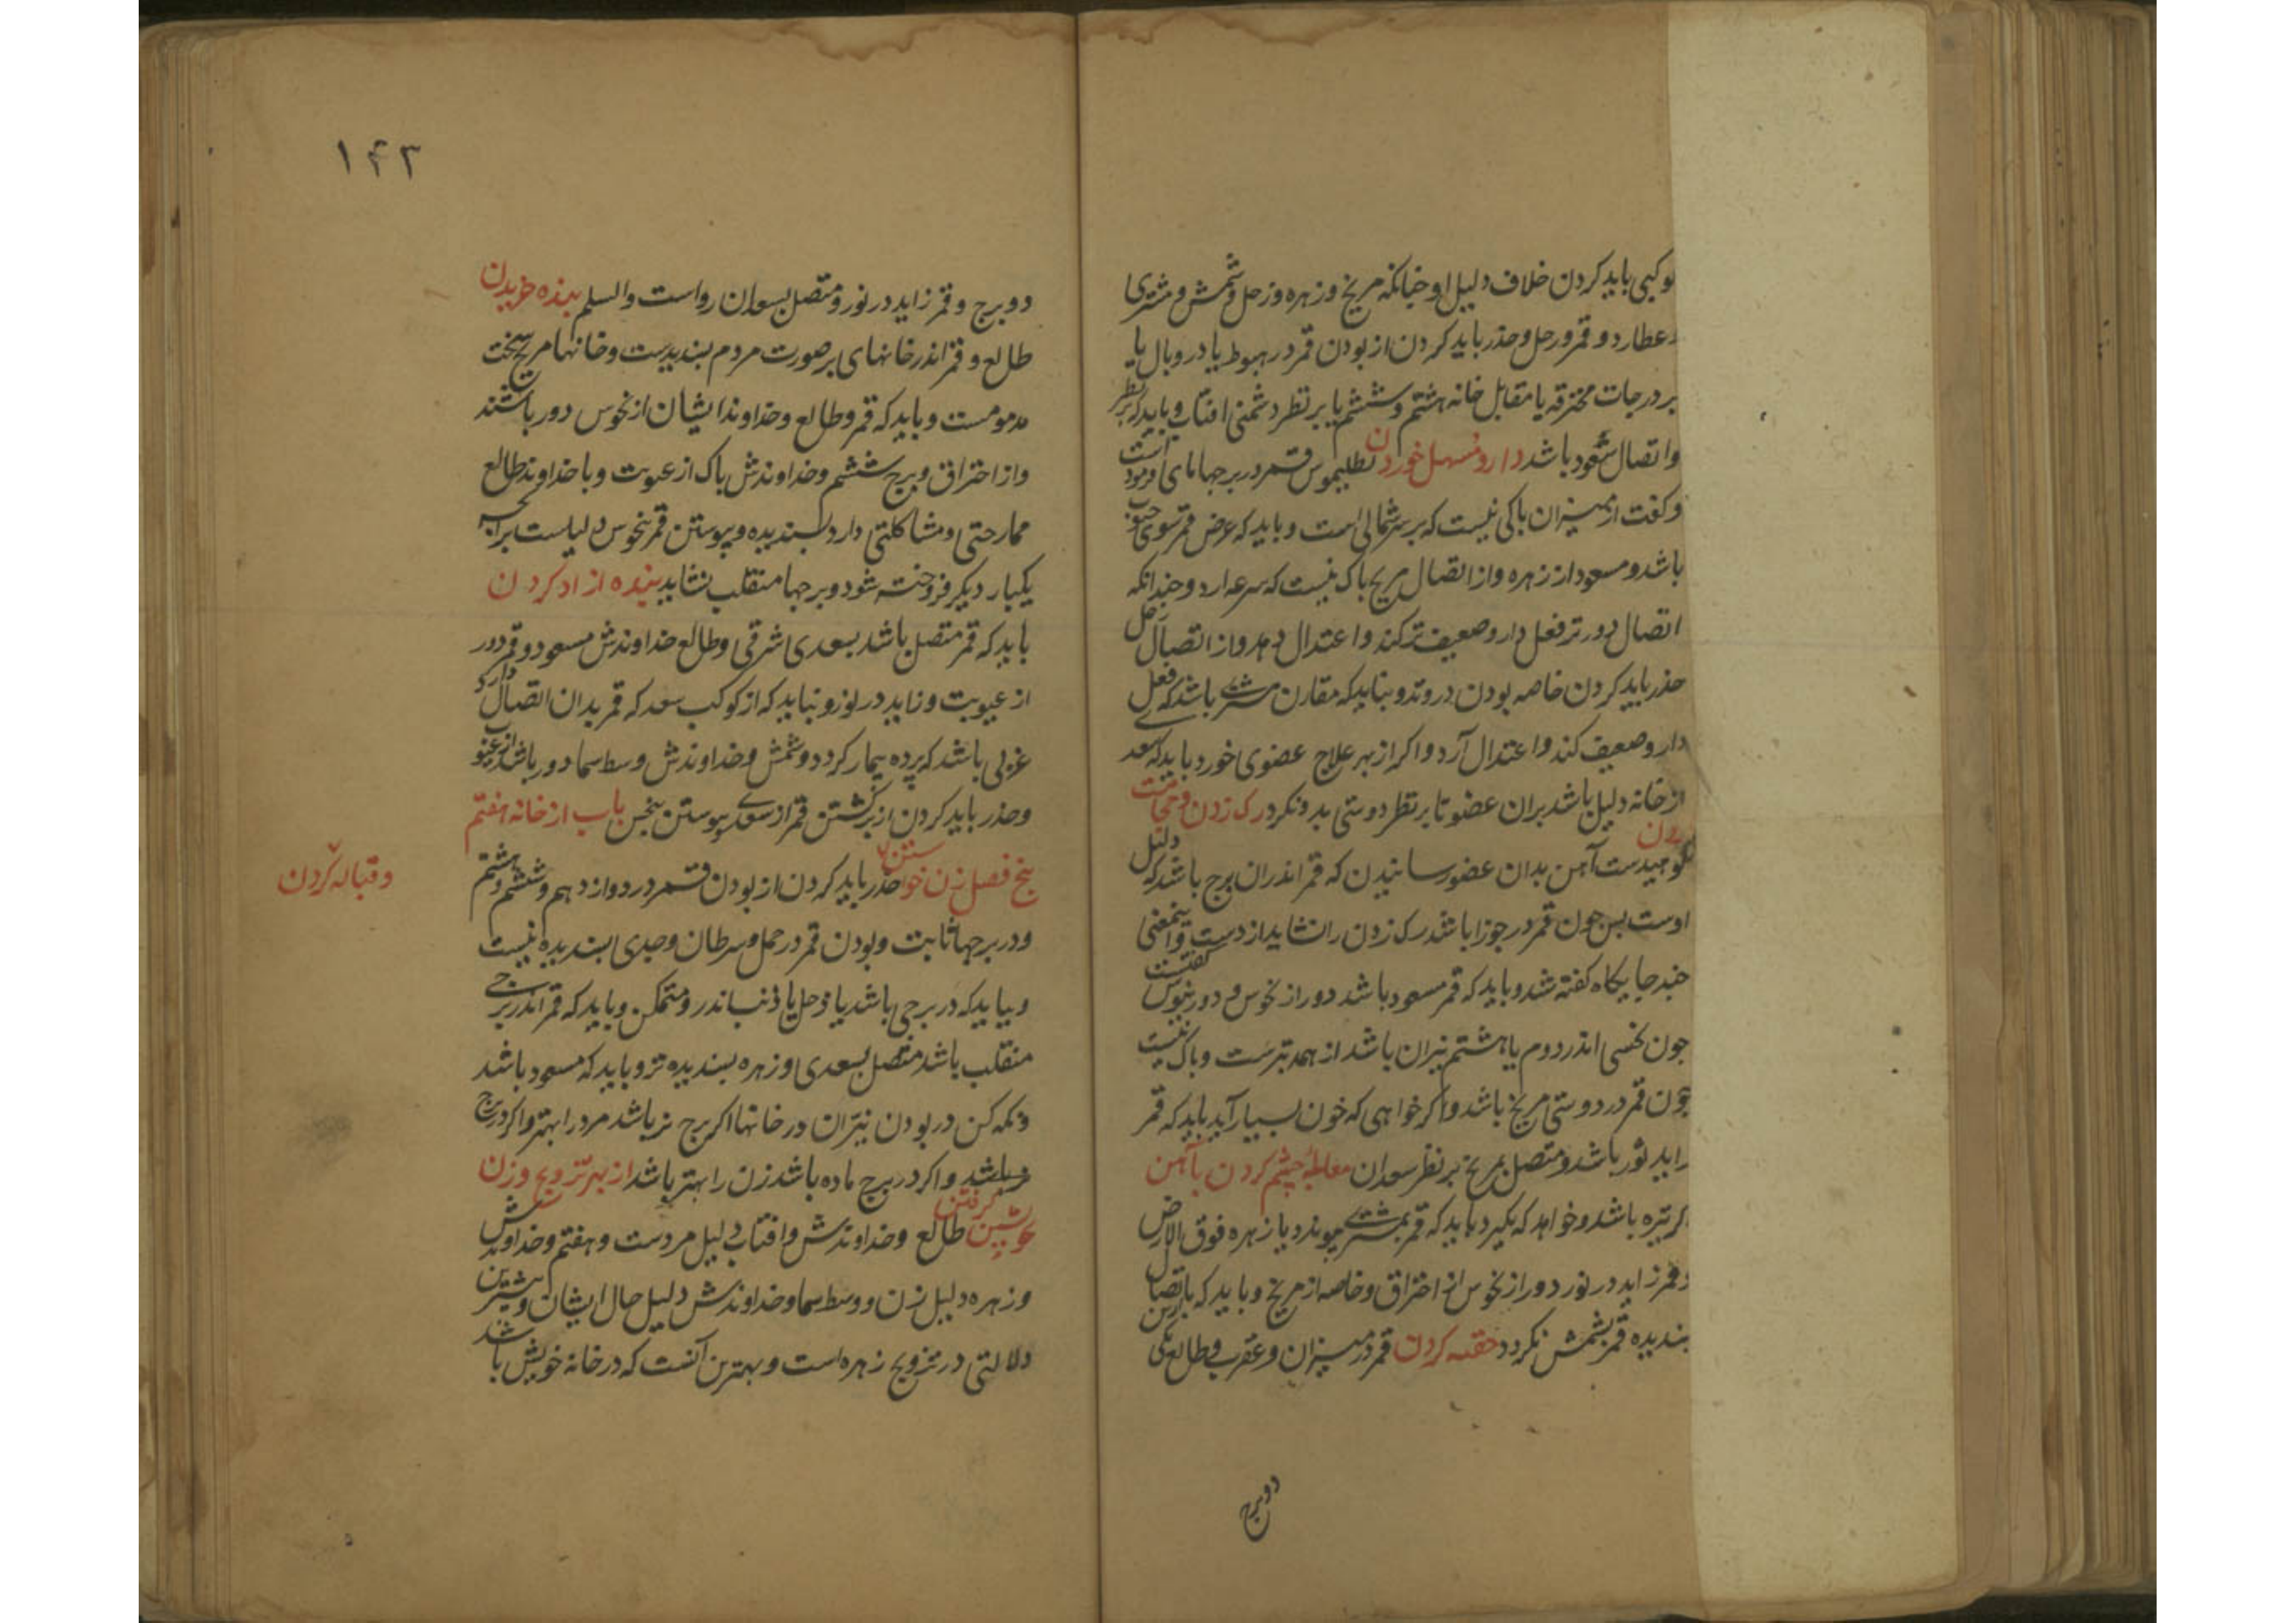 کوکبی باید کردن خلاف دلیل او چنانکه مریخ و زهره و زحل و شمس و مشتری
و عطارد و قمر و زحل و حذر باید کردن از بودن قمر در هبوط یا در وبال یا
بر درجات محترقه یا مقابل خانه هشتم و ششم یا بر نظر دشمنی افتاب و باید که بر نظر
و اتصال سعود باشد دارو مسهل خوردن بطلیموس قمر در برجهای آبی فرموده است
و کفت از میزان باکی نیست که برسر شمالی است و باید که عرض قمر سوی جنوب
باشد و مسعود از زهره و از اتصال مریخ باک نیست که سرعه ارد و چندانکه
اتصال دورتر فعل دارو ضعیف تر کند و اعتدال دهد و از اتصال زحل
حذر باید کردن خاصه بودن در وتد و نباید که مقارن مشتری باشد که فعل
دارو ضعیف کند و اعتدال آرد و اکر از بهر علاج عضوی خورد باید که سعدی
از خانه دلیل باشد بران عضو تا بر نظر دوستی بدو نکرد رک زدن و حجامت
کردن
نکوهیدست آهن بدان عضو رسانیدن که قمر اندران برج باشد که دلیل
اوست پس چون قمر در جوزا باشد رک زدن را نشاید از دست و اینمعنی
چند جایکاه کفته شد و باید که قمر مسعود باشد دور از نحوس و
چون نحسی اندر دوم یا هشتم نیران باشد از همه بترست و باک نیست
چون قمر در دوستی مریخ باشد و اکر خواهی که خون بسیار آید باید که قمر
زاید نور باشد و متصل بمریخ بر نظر سعدان معالجه چشم کردن بآهن
کر تیره باشد و خواهد که بکیرد باید که قمر بمشتری پیوندد یا زهره فوق الارض
و قمر زاید در نور دور از نحوس از احتراق و خاصه از مریخ و باید که باتصال
پسندیده قمر بشمس نکردد حقنه کردن قمر در میزان و عقرب و طالع یکی ازین
دو برج
۱۴۳
دو برج و قمر زاید در نور و متصل بسعدان رواست والسلم بنده خریدن
طالع و قمر اندر خانهای بر صورت مردم پسندیدست و خانها مریخ سخت
مذمومست و باید که قمر و طالع و خداوند ایشان از نحوس دور باشند
و از احتراق و برج ششم و خداوندش پاک از عیوبت و با خداوند طالع
ممازجتی و مشاکلتی دارد پسندیده و پیوستن قمر بنحوس دلیلست برآنچه
یکبار دیکر فروخته شود و برجها منقلب نشاید بنده ازاد کردن
باید که قمر متصل باشد بسعدی شرقی و طالع خداوندش مسعود و قمر دور
از عیوبت و زاید در نور و نباید که از کوکب سعد که قمر بدان اتصال دارد
غربی باشد که برده بیمار کردد و شمس و خداوندش وسط سما دور باشد از عیوب
و حذر باید کردن از برکشتن قمر از سعدی پیوستن بنحس باب از خانه هفتم
پنج فصل زن خواستن حذر باید کردن از بودن قمر در دوازدهم و ششم و هشتم
و قباله کردن
و در برجها ثابت و بودن قمر در حمل و سرطان و جدی پسندیده نیست
و نباید که در برجی باشد یا زحل یا ذنب اندرو متمکن و باید که قمر اندر برجی
منقلب باشد متصل بسعدی و زهره پسندیده تر و باید که مسعود باشد
و نکه کن در بودن نیران در خانها اکر برج نر باشد مرد را بهتر و اکر در برج
باشد و اکر در برج ماده باشد زن را بهتر باشد از بهر تزویج و زن
کرفتن
طالع و خداوندش و افتاب دلیل مردست و هفتم و خداوندش
و زهره دلیل زن و وسط سما و خداوندش دلیل حال ایشان و بیشترین
دلالتی در تزویج زهره است و بهترین آنست که در خانه خویش باشد